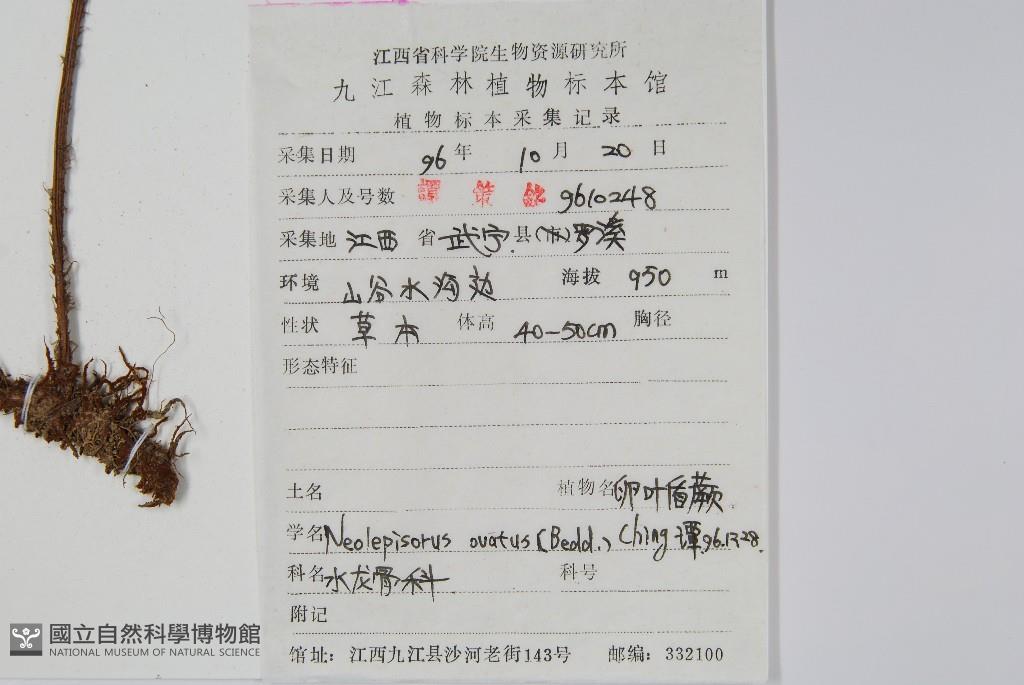 江西省科学院生物资源研究所
九江森林植物标本馆
植物标本采集记录
采集日期 96年 10月 20日
采集人及号数 譚策銘 9610248
采集地 江西 省 武宁 县(市) 罗溪
环境 山谷水沟边 海拔 950 m
性状 草本 体高 40-50cm 胸径
形态特征
土名 植物名 卵叶盾蕨
学名 Neolepisorus ovatus (Bedd.) Ching 譚 96.12.28.
科名 水龙骨科 科号
附记
馆址：江西九江县沙河老街143号 邮编：332100
國立自然科學博物館
NATIONAL MUSEUM OF NATURAL SCIENCE